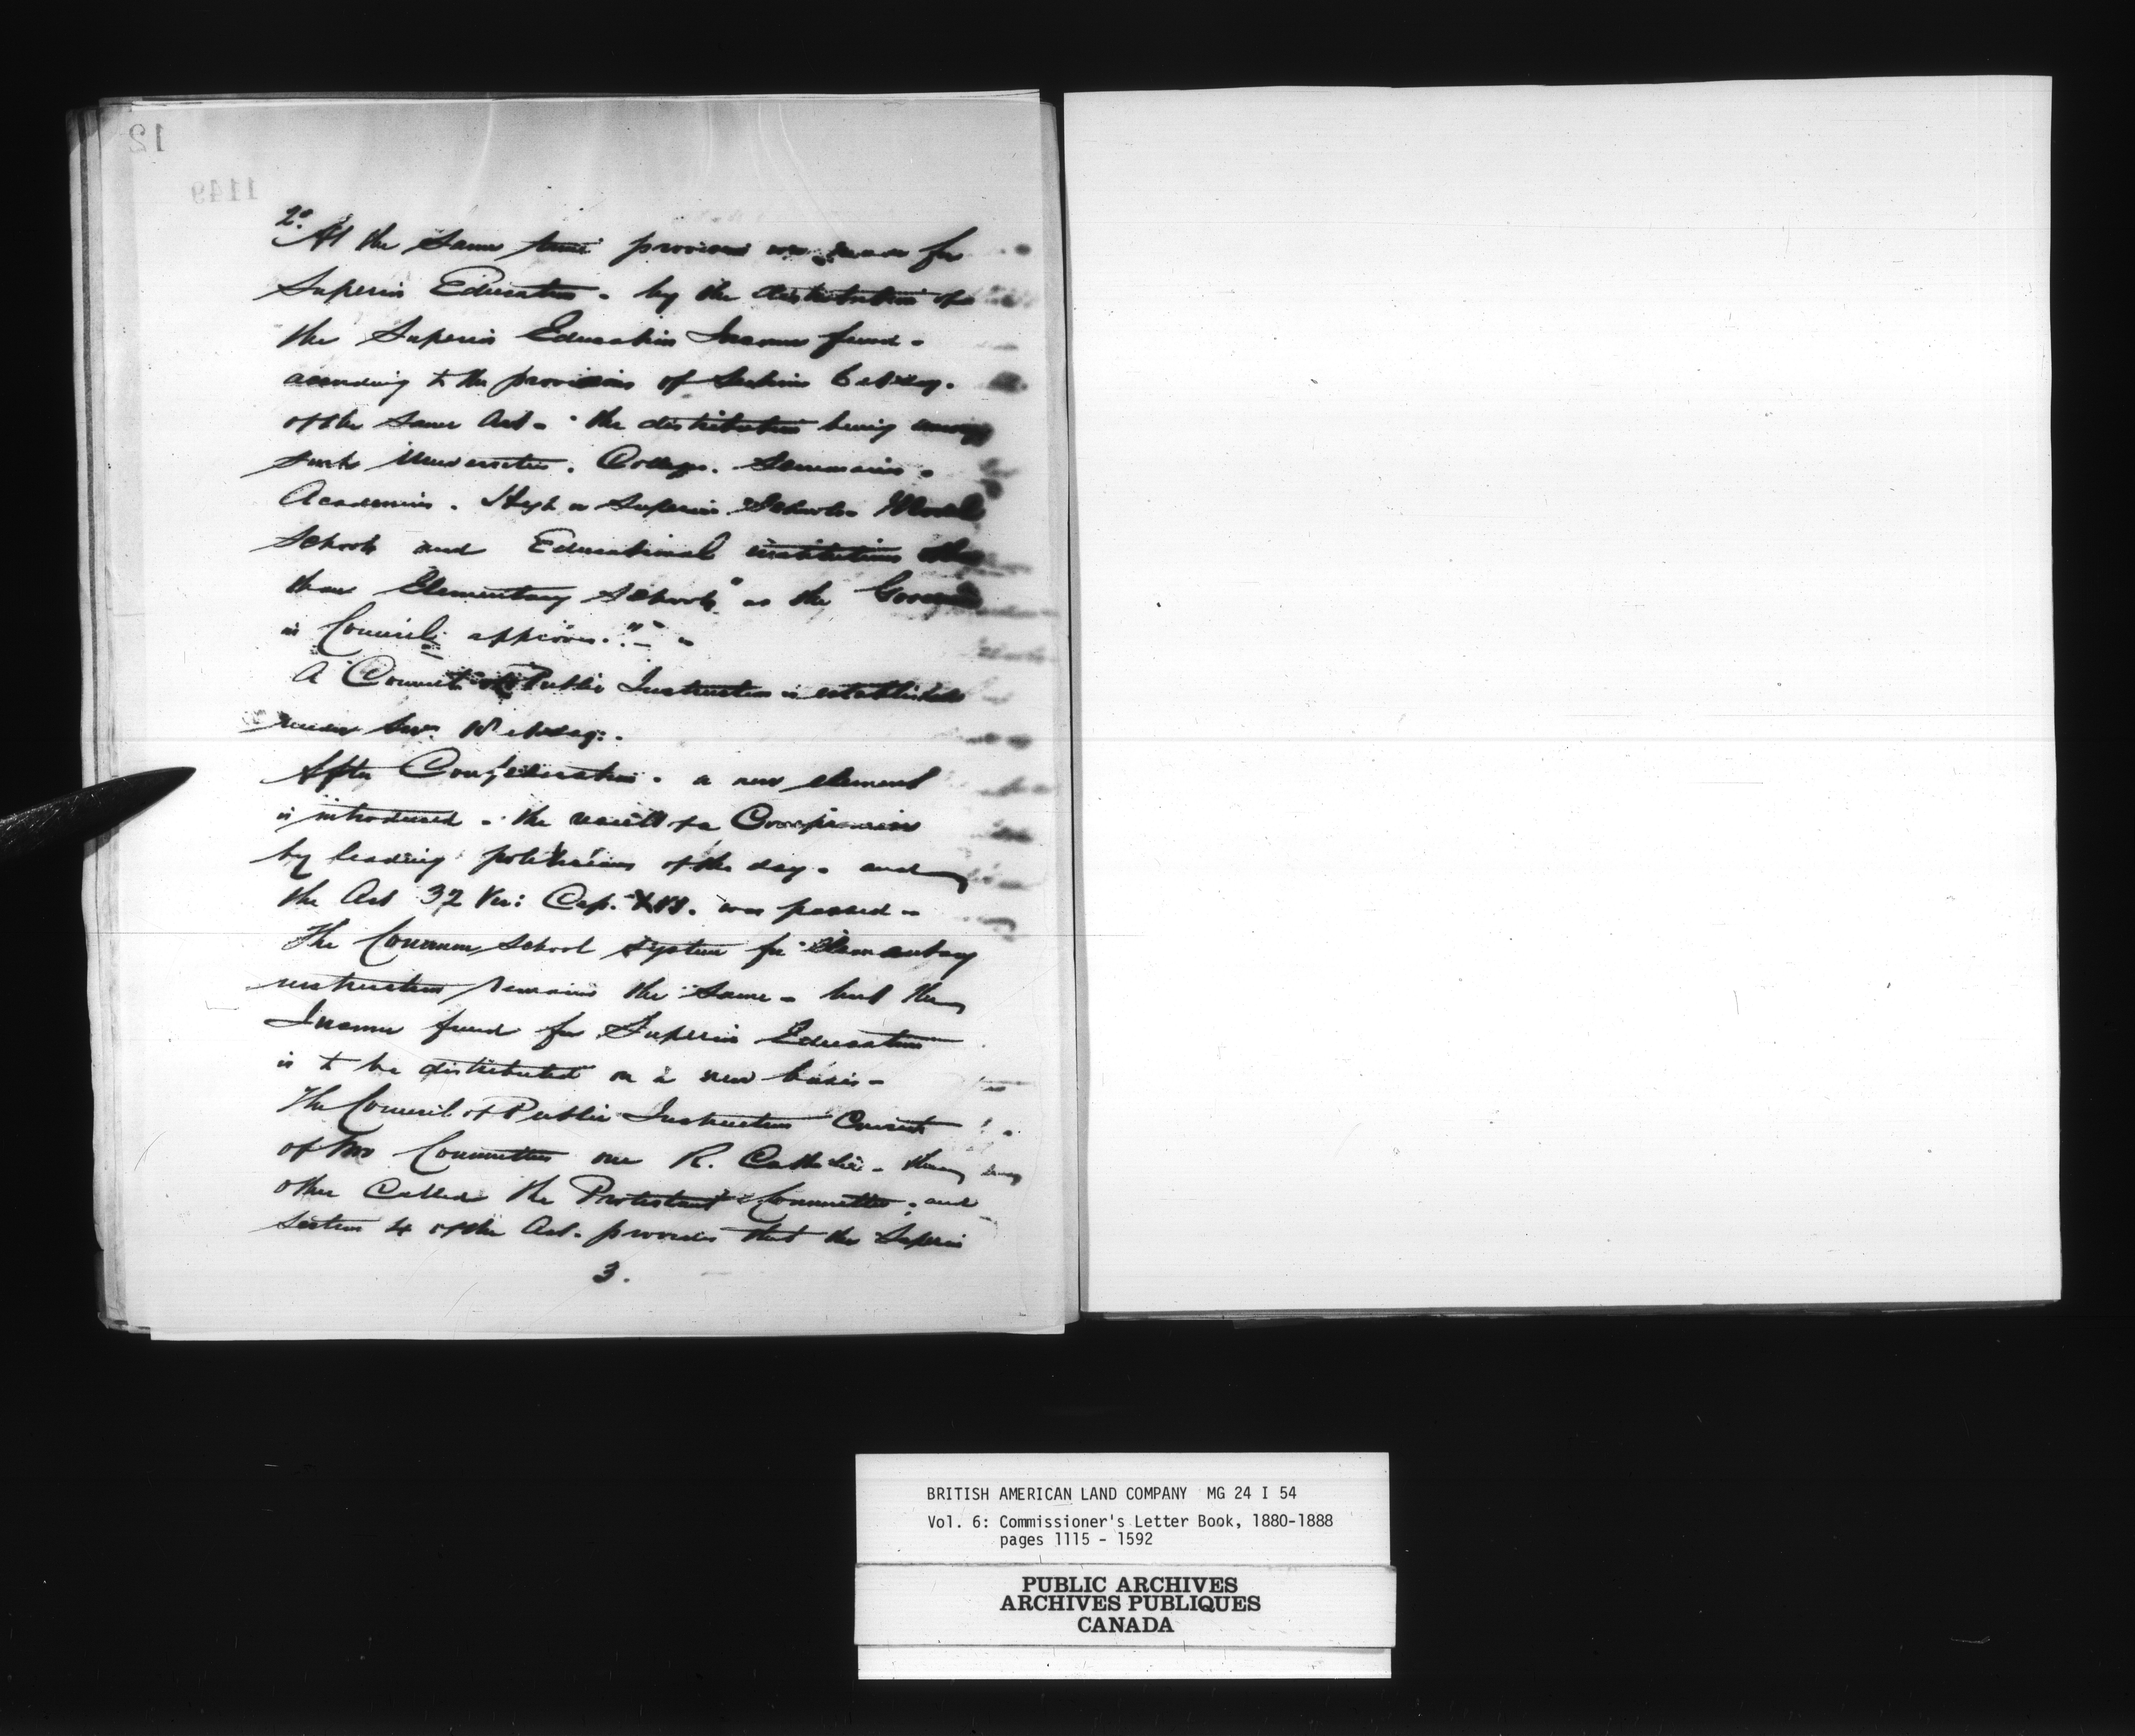 12
1149
2º
At the same time provision was made for
Superior Education - by the distribution of
the Superior Education Income fund -
according to the provisions of Sections 6 et seq.
of the same Act - "the distribution being among
such Universities. Colleges. Seminaries.
Academies. High or Superior Schools - Model
Schools and Educational institutions other
than Elementary Schools" as the Governor
in Council approves." -
A Council of Public Instruction is established
under Sec. 18 et seq: -
After Confederation - a new element
is introduced - the result of a Compromise
by leading politicians of the day - and
the Act 32 Vic: Cap. XVI. was passed -
The Common School System for Elementary
instruction remains the same - but the
Income fund for Superior Education
is to be distributed on a new basis -
The Council of Public Instruction Consists
of two Committees one R. Catholic - the
other Called the Protestant Committee; and
Section 4 of the Act - provides that the Superior
3.
BRITISH AMERICAN LAND COMPANY MG 24 I 54
Vol. 6: Commissioner's Letter Book, 1880-1888
pages 1115 - 1592
PUBLIC ARCHIVES
ARCHIVES PUBLIQUES
CANADA